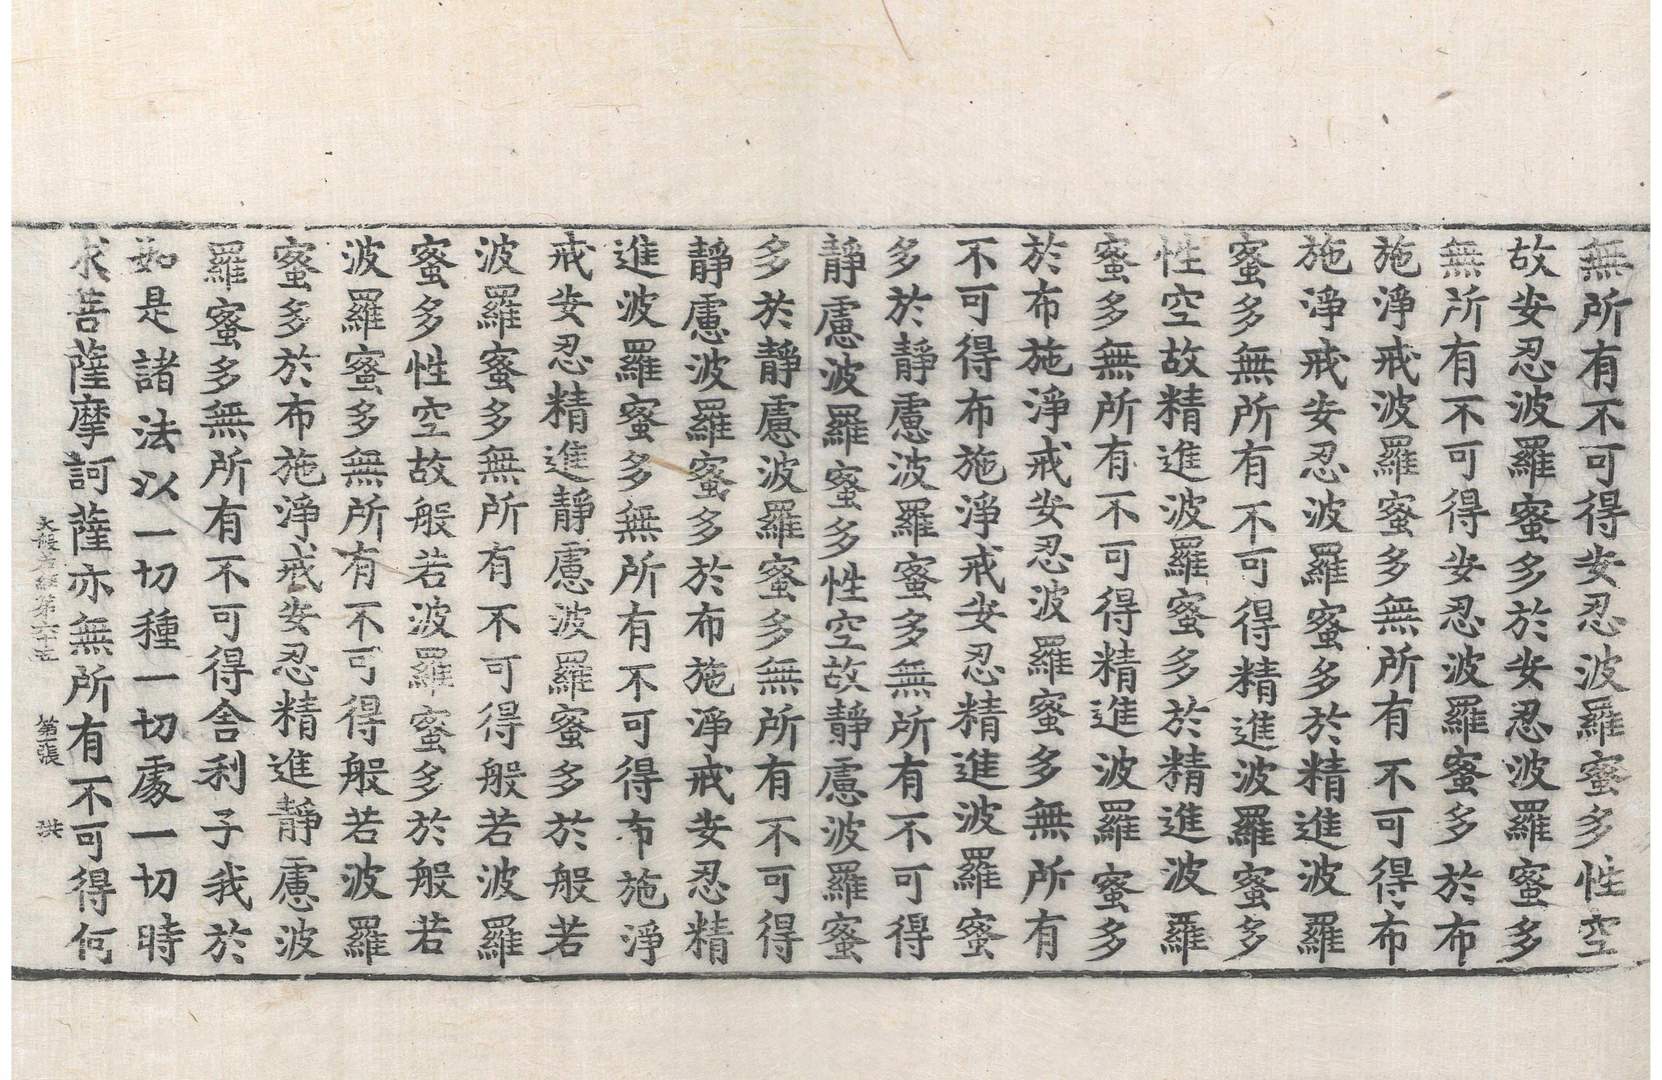 無所有不可得安忍波羅蜜多性空
故安忍波羅蜜多於安忍波羅蜜多
無所有不可得安忍波羅蜜多於布
施淨戒波羅蜜多無所有不可得布
施淨戒安忍波羅蜜多於精進波羅
蜜多無所有不可得精進波羅蜜多
性空故精進波羅蜜多於精進波羅
蜜多無所有不可得精進波羅蜜多
於布施淨戒安忍波羅蜜多無所有
不可得布施淨戒安忍精進波羅蜜
多於靜慮波羅蜜多無所有不可得
靜慮波羅蜜多性空故靜慮波羅蜜
多於靜慮波羅蜜多無所有不可得
靜慮波羅蜜多於布施淨戒安忍精
進波羅蜜多無所有不可得布施淨
戒安忍精進靜慮波羅蜜多於般若
波羅蜜多無所有不可得般若波羅
蜜多性空故般若波羅蜜多於般若
波羅蜜多無所有不可得般若波羅
蜜多於布施淨戒安忍精進靜慮波
羅蜜多無所有不可得舍利子我於
如是諸法以一切種一切處一切時
求菩薩摩訶薩亦無所有不可得何
大般若經第六十五 第二張 洪